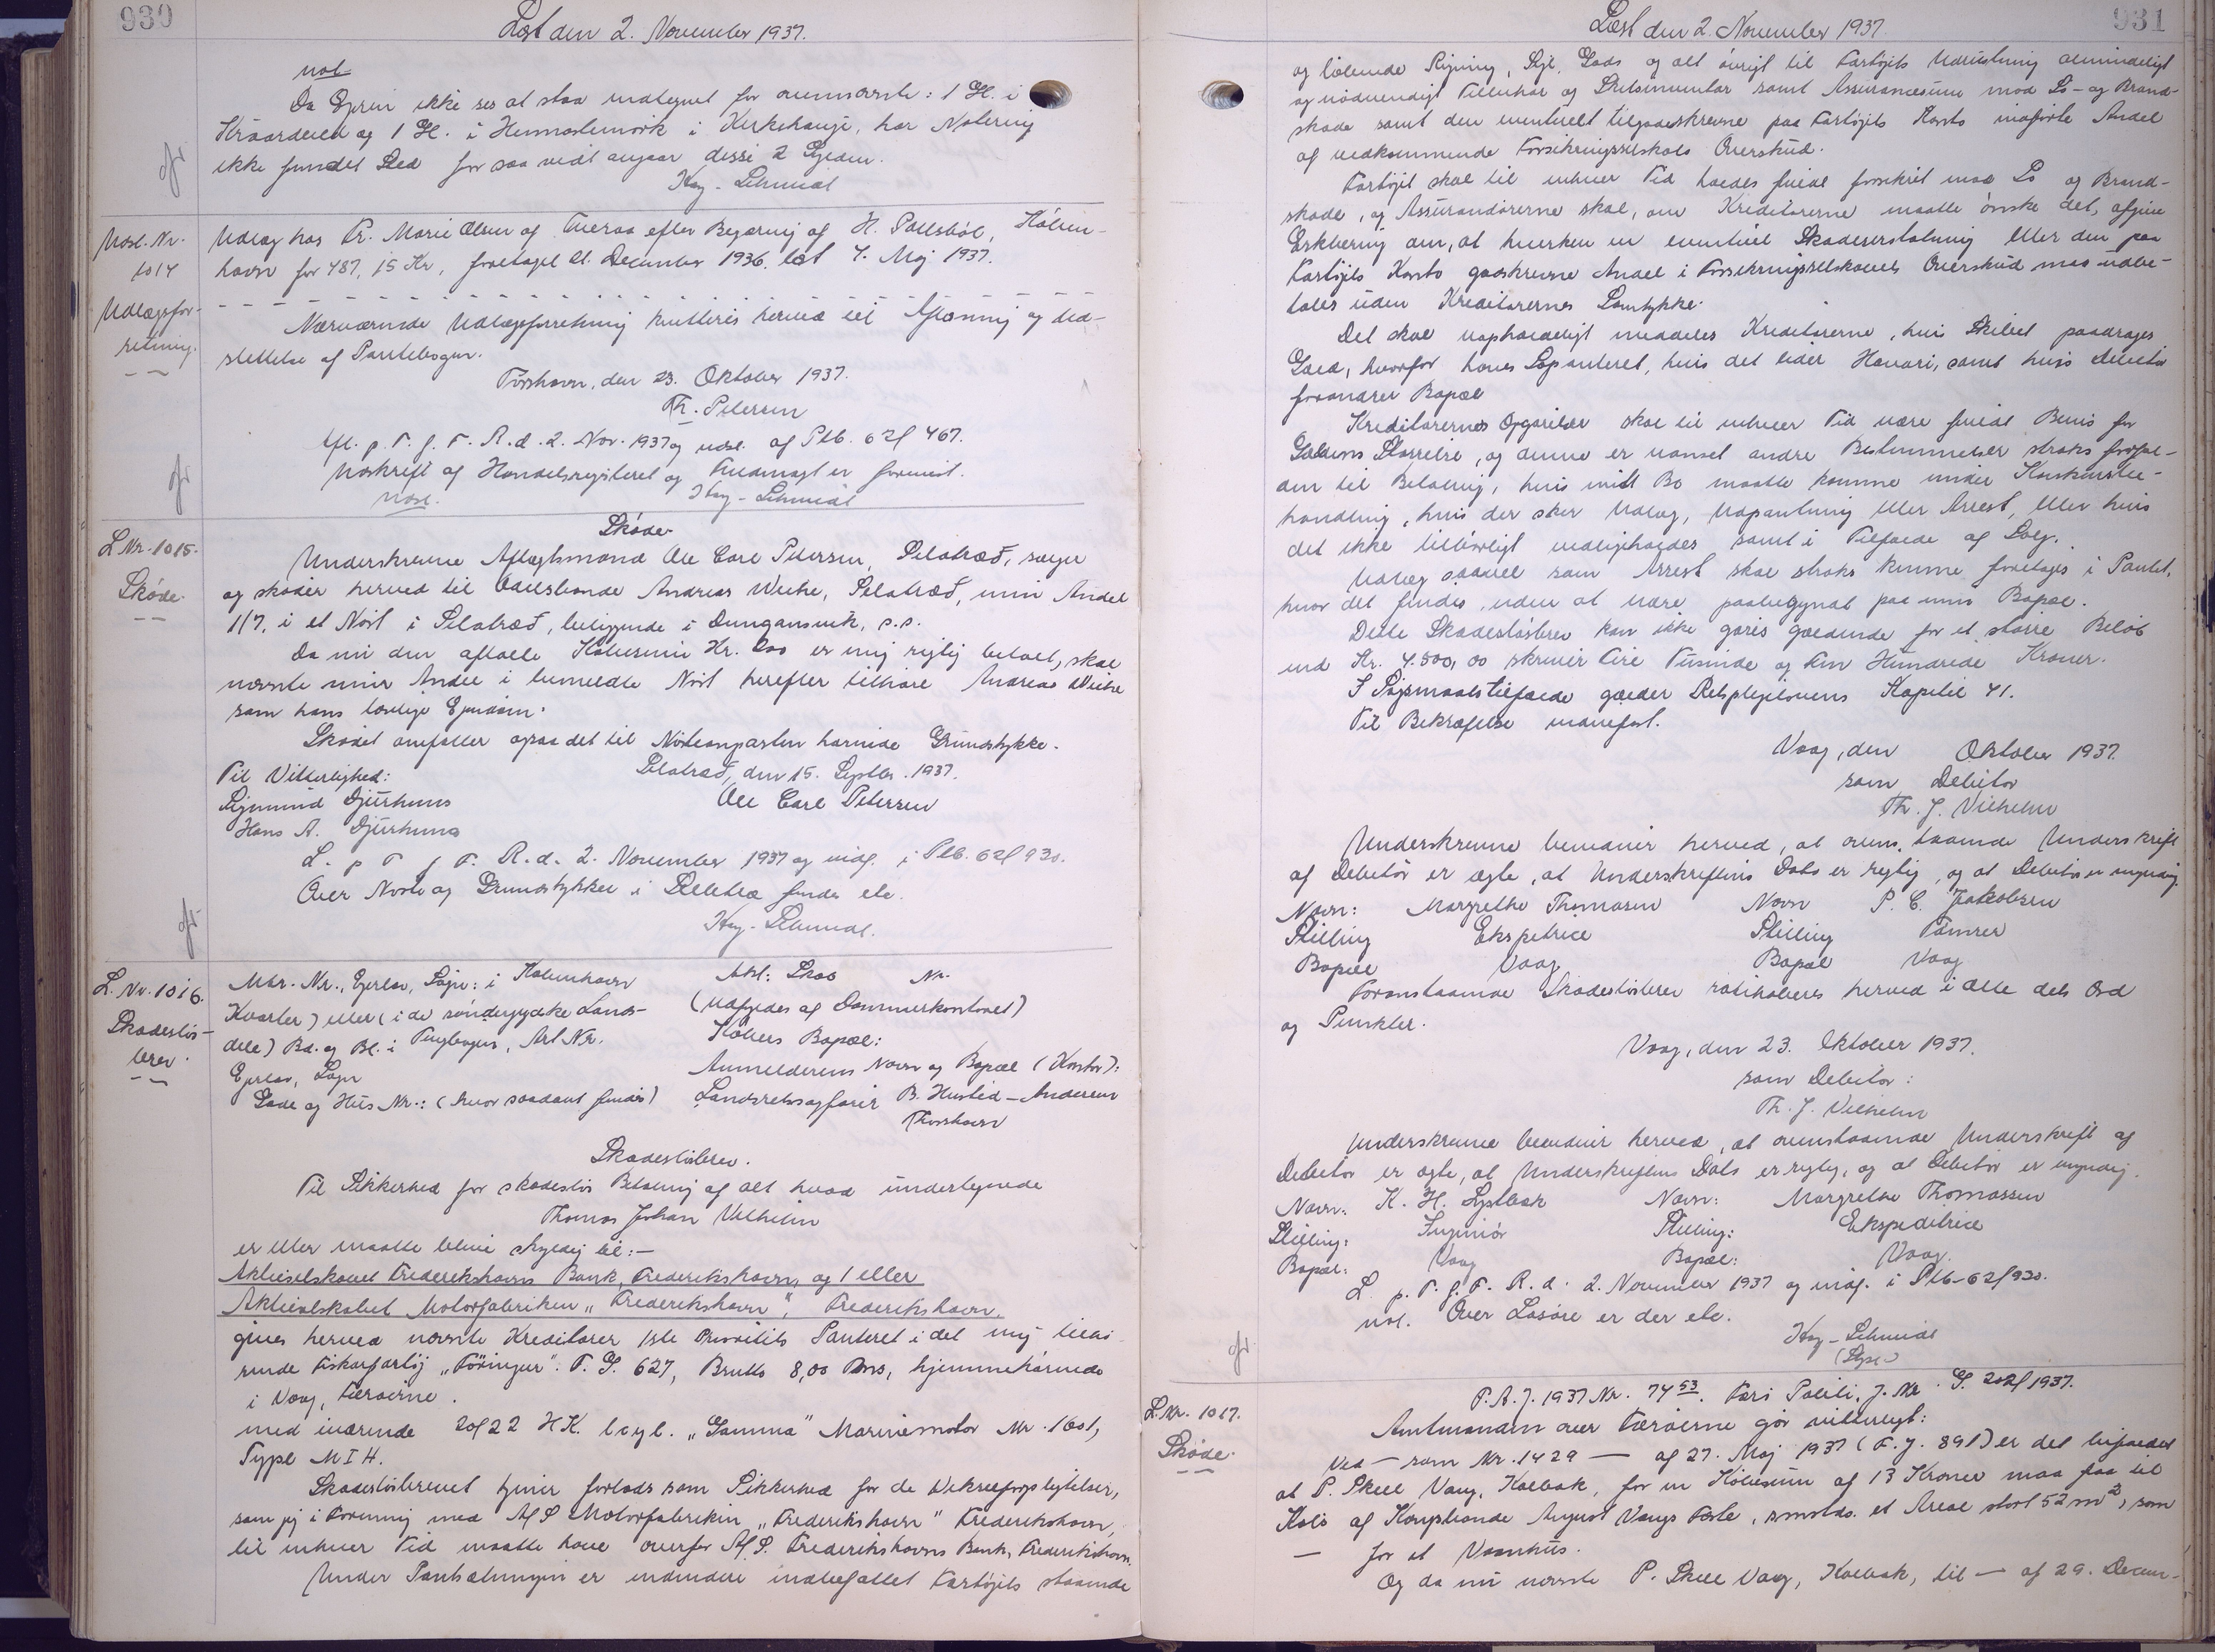 930
Læst den 2. November 1937.
not
Da Ejerin ikke ses at staa indtegnet for ovennævnte: 1 Gl. i
og 1 Gl. i Heimastamørk i Kirkehauge, har Notering
ikke fundet Sted for saa vidt angaar disse 2 Ejedem.
Kay-Schmidt
Udsl. Nr.
1014
Udlægsfor-
retning.
Udlæg hos Fr. Marie Olsen af Tveraa efter Begæring af H. Poulsbøl, Køben-
havn for 487,15 Kr, foretaget d. December 1936. læst 7. Maj 1937.
Nærværende Udlægsforretning kvitteres herved til Aflysning og Ud-
slettelse af Pantebogen.
Torshavn, den 23. Oktober 1937.
Th. Petersen
Afl. p. T. f. F. R. d. 2. Nov. 1937 og udsl. af Ptb. 62f 467.
Udskrift af Handelsregisteret og Fuldmagt er forevist.
udsl. Kay-Schmidt
L. Nr. 1015.
Skøde.
Skøde
Underskrevne Aftægtsmand Ole Carl Petersen, Selatrað, sælger
og skøder herved til Odelsbonde Andreas Weihe, Selatrað, min Andel
1/7, i et Nøst i Selatrað, beliggende i Dungansvik, s.s.
Da nu den aftalte Købesum Kr. 200 er mig rigtig betalt, skal
nævnte min Andel i bemeldte Nøst herefter tilhøre Andreas Weihe
som hans lovlige Ejendom.
Skødet omfatter ogsaa det til Nøsteanparten hørende Grundstykke.
Til Vitterlighed:
Selatrað, den 15. Septbr. 1937.
Sigmund Djurhuus
Ole Carl Petersen
Hans A. Djurhuus
L. p. T. f. F. R. d. 2. November 1937 og indf. i Ptb. 62f 930.
Over Nøste og Grundstykket i Selletræ findes ell.
Kay-Schmidt.
L. Nr. 1016.
Skadesløs-
brev.
Mtr. Nr., Ejerlav, Sogn: i København
Kvarter) eller (i de sønderjydske Lands-
dele) Bd. og Bl. i Tingbogen, Art Nr.
Ejerlav, Sogn
Gade og Hus Nr.: (hvor saadant findes)
Akt: Skab Nr.
(Udfyldes af Dommerkontoret)
Købers Bopæl:
Anmelderens Navn og Bopæl (Kontor):
Landsretssagfører B. Hustad-Andersen
Thorshavn
Skadesløsbrev.
Til Sikkerhed for skadesløs Betaling af alt hvad undertegnede
Thomas Johan Vilhelm
er eller maatte blive skyldig til:-
Aktieselskabet Frederikshavns Bank, Frederikshavn, og / eller
Aktieselskabet Motorfabriken "Frederikshavn", Frederikshavn,
gives herved nævnte Kreditorer 1ste Prioritets Panteret i det mig tilhø-
rende Fiskerfartøj "Föringur". F. G. 627, Brutto 8,00 Tons, hjemmehørende
i Vaag, Færøerne.
med iværende 20/22 H.K. 1 cyl. "Gamma" Marinemotor Nr. 1601,
Type M I H.
Skadesløsbrevet tjener forlods som Sikkerhed for de Vekselforpligtelser,
som jeg i Forening med A/S Motorfabrikin "Frederikshavn" Frederikshavn,
til enhver Tid maatte have overfor A/S. Frederikshavns Bank, Frederikshavn.
Under Pantsætningen er endvidere indbefattet Fartøjets staaende
931
Læst den 2. November 1937.
og løbende Rigning, Sejl, Gods og alt øvrigt til Fartøjets Udrustning almindeligt
og nødvendigt Tilbehør og Skibsinventar samt Assurancesum mod Sø- og Brand-
skade samt den eventuelt tilgodeskrevne paa Fartøjets Konto indførte Andel
af vedkommende Forsikringsselskabs Overskud.
Fartøjet skal til enhver Tid holdes fuldt forsikret mod Sø og Brand-
skade, og Assurandørerne skal, om Kreditorerne maatte ønske det, afgive
Erklæring om, at hverken en eventuel Skadeserstatning eller den paa
Fartøjets Konto godskrevne Andel i Forsikringsselskabets Overskud maa udbe-
tales uden Kreditorernes Samtykke.
Det skal uopholdeligt meddeles Kreditorerne, hvis Skibet paadrages
Gæld, hvorfor haves Søpanteret, hvis det lider Havari, samt hvis Debitor
forandrer Bopæl
Kreditorernes Opgørelse skal til enhver Tid være fuldt Bevis for
Gældens Størrelse, og denne er uanset andre Bestemmelser straks forfal-
den til Betaling, hvis mit Bo maatte komme under Konkursbe-
handling, hvis der sker Udlæg, Udpantning eller Arrest, eller hvis
det ikke tilbørligt vedligeholdes samt i Tilfælde af Salg.
Udlæg saavel som Arrest skal straks kunne foretages i Pantet,
hvor det findes, uden at være paabegyndt paa min Bopæl.
Dette Skadesløsbrev kan ikke gøres gældende for et større Beløb
end Kr. 4.500,00 skriver Fire Tusinde og Fem Hundrede Kroner.
I Søgsmaalstilfælde gælder Retsplejelovens Kapitel 41.
Til Bekræftelse underskrevet.
Vaag, den Oktober 1937.
som Debitor
Th. J. Vilhelm
Underskrevne bevidner herved, at ovens. staaende Underskrift
af Debitor er ægte, at Underskriftens Dato er rigtig, og at Debitor er myndig.
Navn: Margrethe Thomasen Navn P. C. Jakobsen
Stilling Ekspetrice Stilling Tømrer
Bopæl Vaag Bopæl Vaag
Foranstaaende Skadesløsbrev ratihaberes herved i alle dets Ord
og Punkter.
Vaag, den 23. Oktober 1937.
som Debitor:
Th. J. Vilhelm
Underskrevne bevidner herved, at ovenstaaende Underskrift af
Debitor er ægte, at Underskriftens Dato er rigtig, og at Debitor er myndig.
Navn: K. H. Lystbæk Navn: Margrethe Thomassen
Stilling: Ingeniør Stilling: Ekspeditrice
Bopæl: Vaag Bopæl: Vaag.
L. p. T. f. F. R. d. 2. November 1937 og indf. i Ptb-62f930.
not. Over Løsøre er der ell.
Kay-Schmidt
L. Nr. 1017.
Skøde.
F. A. J. 1937 Nr. 74 53. Færø Politi, J. Nr. G. 202/1937.
Amtmanden over Færøerne gør vitterligt:
Ved — som Nr. 1429 — af 27. Maj 1937 (F. J. 891) er det bifaldet
at P. Skeel Vang, Kollbak, for en Købesum af 13 Kroner maa faa til
Købs af Kongsbonde August Vangs Fæste, et Areal stort 52 m², som
— for et Vaanhus.
Og da nu nævnte P. Skeel Vang, Kolbak, til — af 29. Decem-